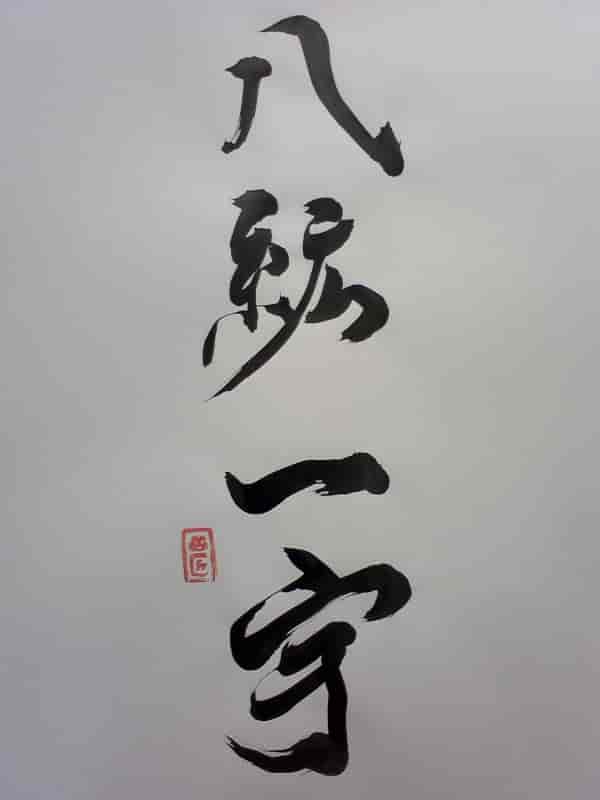 八紘一宇